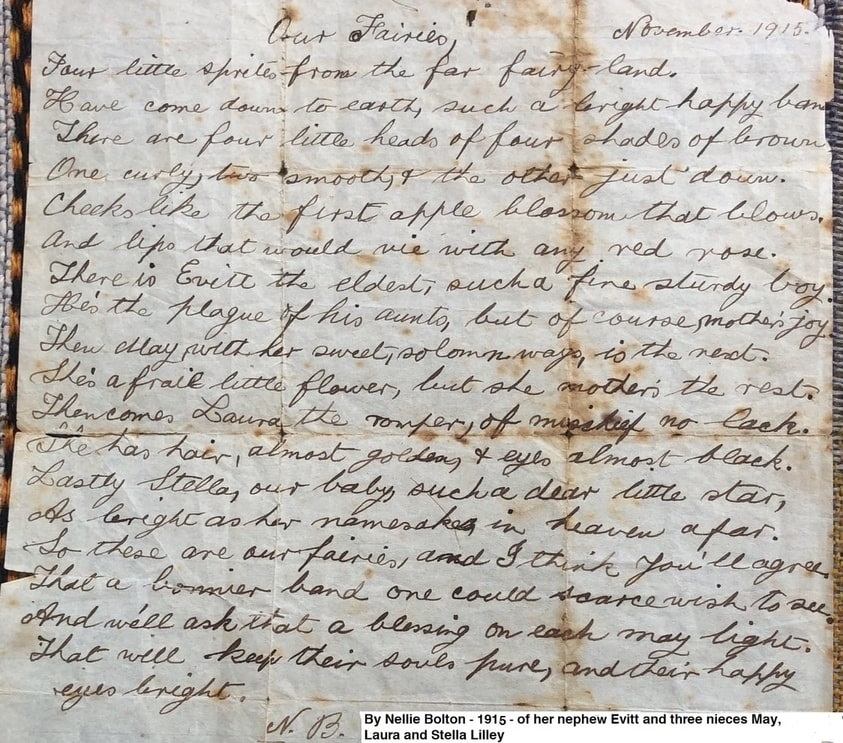 Our Fairies, November. 1915.
Four little sprites from the far fairy-land.
Have come down to earth, such a bright happy ban
There are four little heads of four shades of brown
One curly, two smooth, & the other just down.
Cheeks like the first apple blossom that blows.
And lips that would vie with any red rose.
There is Evitt the eldest, such a fine sturdy boy.
He's the plague of his aunts, but of course, mother's joy.
Then May, with her sweet, solomn ways, is the next.
She's a frail little flower, but she mother's the rest.
Then comes Laura, the romper, of mischief no lack.
She has hair, almost golden, & eyes almost black.
Lastly Stella, our baby, such a dear little star,
As bright as her namesakes, in heaven afar.
So these are our fairies, and I think you'll agree.
That a bonnier band one could scarce wish to see.
And we'll ask that a blessing on each may light.
That will keep their souls pure, and their happy
eyes bright.
N. B.
By Nellie Bolton - 1915 - of her nephew Evitt and three nieces May,
Laura and Stella Lilley